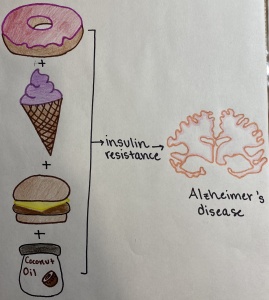 +
+
+
Coconut
Oil
insulin
resistance
Alzheimer's
disease